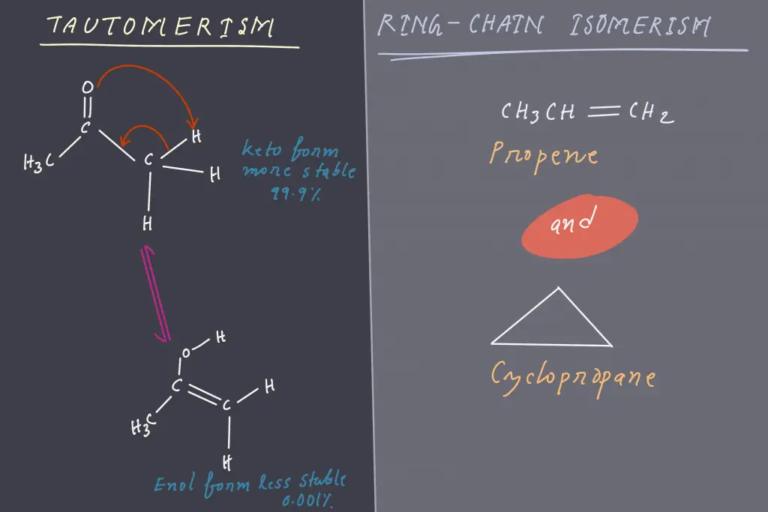 TAUTOMERISM
O
C
H
H3C
C
H
H
keto form
more stable
99.9%
O
H
C
C
H
H3C
H
Enol form less stable
0.001%
RING-CHAIN ISOMERISM
CH3CH=CH2
Propene
and
Cyclopropane